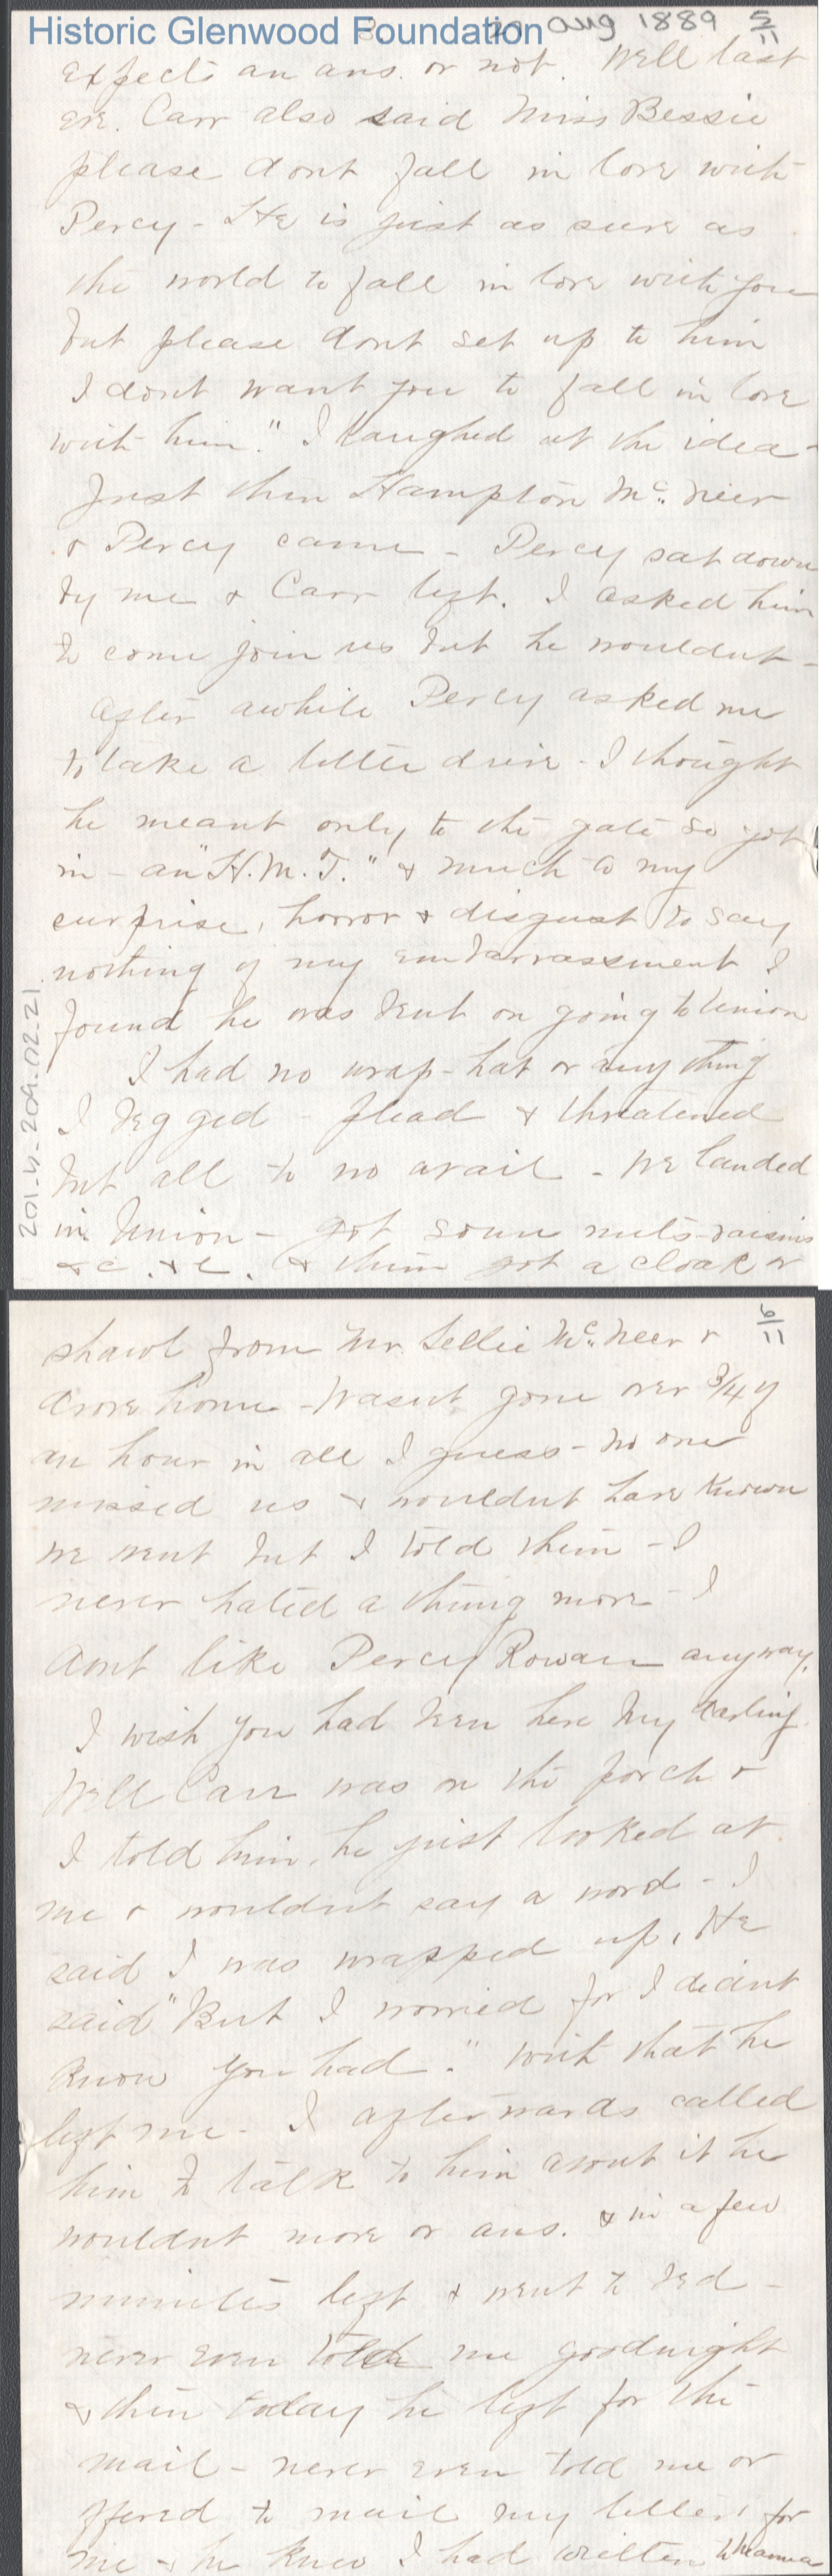 Historic Glenwood Foundation
Aug 1889 5/11
expects an ans. or not. Well last
eve. Carr also said Miss Bessie
please dont fall in love with
Percy - He is just as sure as
the world to fall in love with you
but please dont set up to him
I dont want you to fall in love
with him." I laughed at the idea -
Just then Hampton Mc. Neer
& Percy came - Percy sat down
by me & Carr left. I asked him
to come join us but he wouldnt -
after awhile Percy asked me
to take a little drive - I thought
he meant only to the gate so got
in - an "H.M.T." & much to my
surprise, horror & disgust to say
nothing of my embarrassment I
found he was bent on going to Union
I had no wrap - hat or any thing
I begged - plead & threatened
but all to no avail - we landed
in Union - got some nuts - raisins
&c. &c. & then got a cloak or
201.4-209.02.21
6/11
shawl from Mr. Lellie Mc. Neer &
drove home - Wasnt gone over 3/4 of
an hour in all I guess - no one
missed us & wouldnt have known
we went but I told them - I
never hated a thing more - I
dont like Percy Rowan anyway.
I wish you had been here my darling
Well Carr was on the porch &
I told him, he just looked at
me & wouldnt say a word - I
said I was wrapped up, He
said "But I worried for I didnt
know you had." with that he
left me - I afterwards called
him to talk to him about it he
wouldnt move or ans. & in a few
minutes left & went to bed -
never even told me goodnight
& then today he left for the
mail - never even told me or
offered to mail my letters for
me & he knew I had written to Mamma